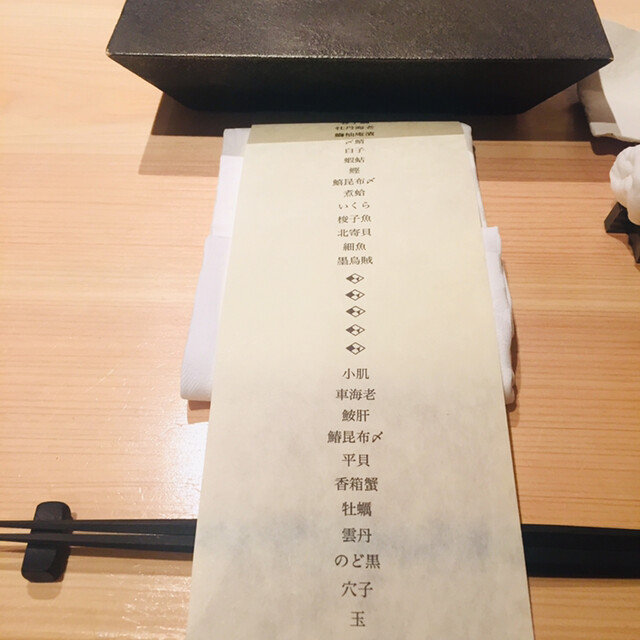 牡丹海老
鰤柚庵漬
〆鯖
白子
蝦蛄
鰹
鮹昆布〆
煮蛤
いくら
梭子魚
北寄貝
細魚
墨烏賊
小肌
車海老
鮟肝
鰆昆布〆
平貝
香箱蟹
牡蠣
雲丹
のど黒
穴子
玉